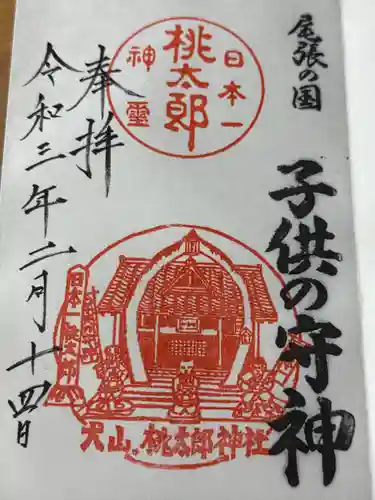 尾張の国
子供の守神
日本一
桃太郎
神霊
奉拝
令和三年二月十四日
日本一
犬山・桃太郎神社